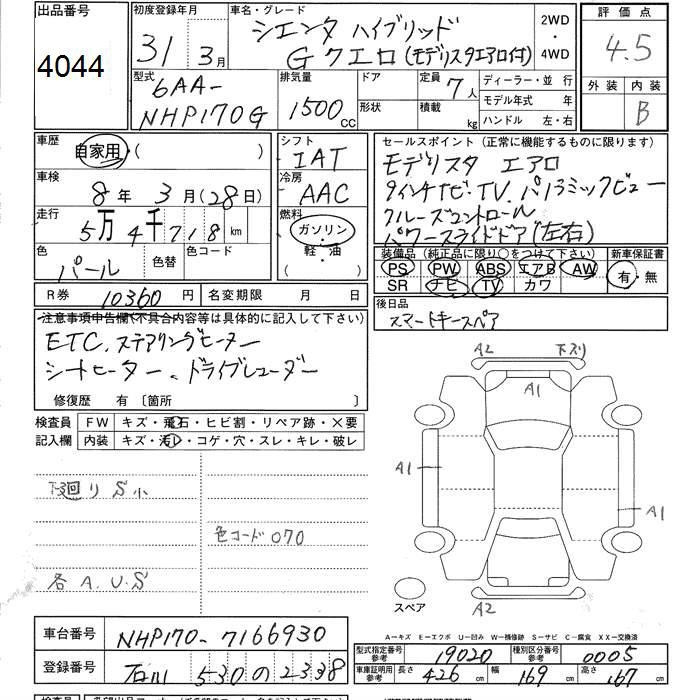 出品番号
4044
初度登録年月
31年 3月
車名・グレード
シエンタ ハイブリッド
G クエロ(モデリスタエアロ付)
2WD
・
4WD
評価点
4.5
外装 内装
B
型式
6AA-
NHP170G
排気量
1500CC
ドア
形状
定員 7人
積載 kg
ディーラー・並行
モデル年式 年
ハンドル 左・右
車歴
自家用・( )
車検
8年 3月(28日)
走行
5万4千718km
色
パール
色替
色コード
シフト
IAT
冷房
AAC
燃料
ガソリン
軽・油
( )
セールスポイント(正常に機能するものに限ります)
モデリスタ エアロ
9インチナビ・TV.パノラミックビュー
クルーズコントロール
パワースライドドア(左右)
装備品(純正品に限り○をつけて下さい)
新車保証書
PS PW ABS エアB AW
SR ナビ TV カワ
有・無
R券 10360円
名変期限 月 日
後日品
スマートキースペア
注意事項申告欄(不具合内容等は具体的に記入して下さい)
ETC.ステアリングヒーター
シートヒーター、ドライブレコーダー
修復歴 有〔箇所 〕
検査員
記入欄
FW キズ・飛石・ヒビ割・リペア跡・×要
内装 キズ・汚レ・コゲ・穴・スレ・キレ・破レ
下廻りS小
色コード070
各A.U.S
A2
下スリ
A1
A1
A1
A2
スペア
A-キズ E-エクボ U-凹み W-補修跡 S-サビ C-腐食 XX-交換済
車台番号 NHP170-7166930
登録番号 石川 530 の 2338
型式指定番号
参考
19020
種別区分番号
参考
0005
車庫証明用
参考
長さ 426cm 幅 169cm 高さ 167cm